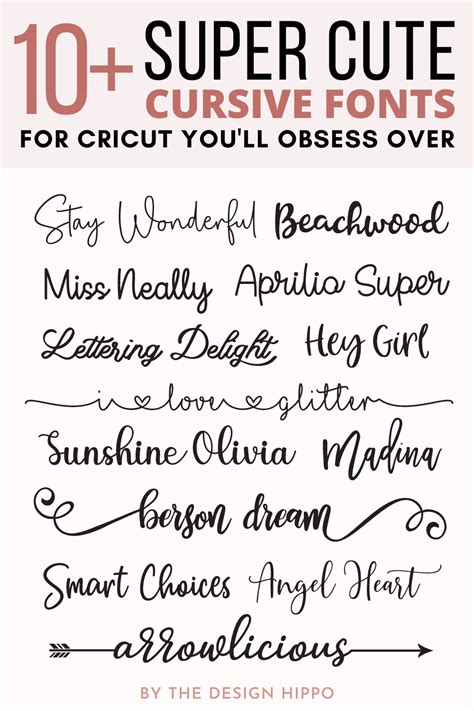 10+ SUPER CUTE
CURSIVE FONTS
FOR CRICUT YOU'LL OBSESS OVER
Stay Wonderful Beachwood
Miss Neally Aprilia Super
Lettering Delight Hey Girl
i love glitter
Sunshine Olivia Madina
berson dream
Smart Choices Angel Heart
arrowlicious
BY THE DESIGN HIPPO